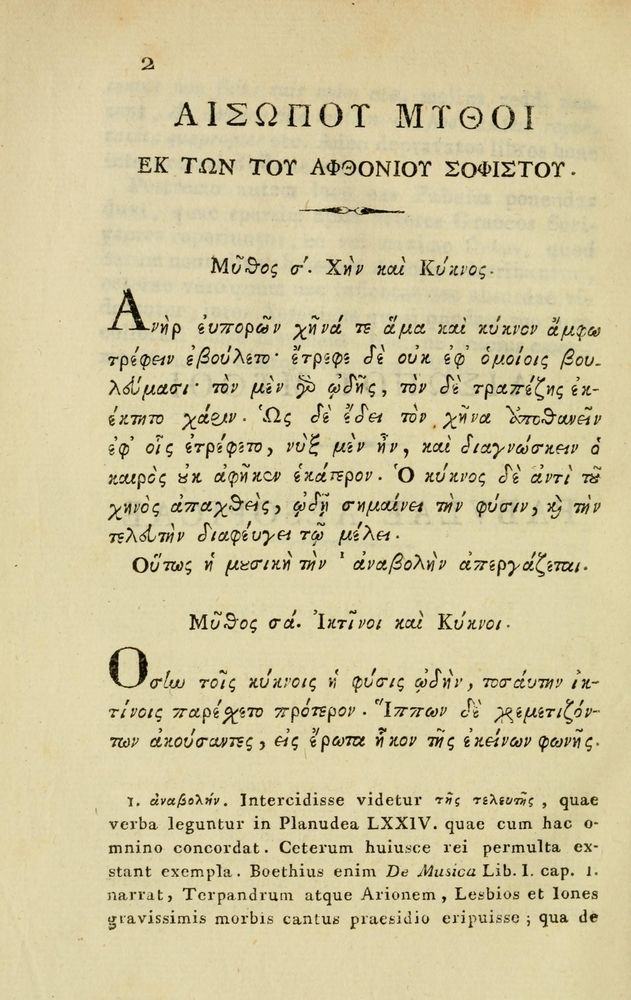 2
ΑΙΣΩΠΟΥ ΜΥΘΟΙ
ΕΚ ΤΩΝ ΤΟΥ ΑΦΘΟΝΙΟΥ ΣΟΦΙΣΤΟΥ.
Μῦθος σ'. Χὴν καὶ Κύκνος.
Ανὴρ ἐυπορῶν χῆνά τε ἅμα καὶ κύκνον ἄμφω
τρέφειν ἐβούλετο· ἔτρεφε δὲ οὐκ ἐφ' ὁμοίοις βου-
λεύμασι· τὸν μὲν γὰρ ᾠδῆς, τὸν δὲ τραπέζης ἐκ-
έκτητο χάριν. Ὡς δὲ ἔδει τὸν χῆνα ἀποθανεῖν
ἐφ' οἷς ἐτρέφετο, νὺξ μὲν ἦν, καὶ διαγνώσκειν ὁ
καιρὸς ȣκ ἀφῆκεν ἑκάτερον. Ὁ κύκνος δὲ ἀντὶ τȣ͂
χηνὸς ἀπαχθεὶς, ᾠδῇ σημαίνει τὴν φύσιν, ϗ τὴν
τελευτὴν διαφέυγει τῷ μέλει.
Οὕτως ἡ μȣσικὴ τὴν ¹ ἀναβολὴν ἀπεργάζεται.
Μῦθος σά. Ἰκτῖνοι καὶ Κύκνοι.
Οσίω τοῖς κύκνοις ἡ φύσις ᾠδὴν, τοσάυτην ἰκ-
τίνοις παρέχετο πρότερον. Ἵππων δὲ χρεμετιζόν-
των ἀκούσαντες, εἰς ἔρωτα ἧκον τῆς ἐκείνων φωνῆς.
1. ἀναβολήν. Intercidisse videtur τῆς τελευτῆς, quae
verba leguntur in Planudea LXXIV. quae cum hac o-
mnino concordat. Ceterum huiusce rei permulta ex-
stant exempla. Boethius enim De Musica Lib. I. cap. 1.
narrat, Terpandrum atque Arionem, Lesbios et Iones
gravissimis morbis cantus praesidio eripuisse; qua de